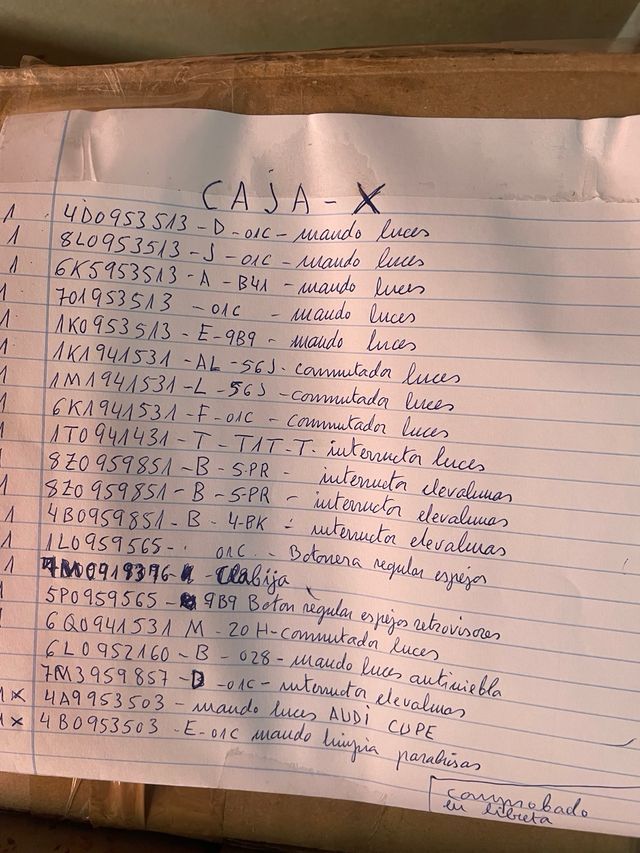 CAJA-X
1 4D0953513-D-01C-mando luces
1 8L0953513-J-01C-mando luces
1 6K5953513-A-B41-mando luces
1 701953513 -01C -mando luces
1 1K0953513-E-9B9-mando luces
1 1K1941531-AL-56J-conmutador luces
1 1M1941531-L-56J-conmutador luces
1 6K1941531-F-01C-conmutador luces
1 1T0941431-T-T1T-T-interructor luces
1 8Z0959851-B-5PR-interructor elevalunas
1 8Z0959851-B-5PR-interructor elevalunas
1 4B0959851-B-4-PK-interructor elevalunas
1 1L0959565-.01C.-Botonera regular espejos
1 -Clabija
5P0959565-9B9 Boton regular espejos retrovisores
6Q0941531 M-20H-conmutador luces
6L0952160-B-028-mando luces antiniebla
7M3959857-D-01C-interructor elevalunas
1x 4A9953503-mando luces AUDI CUPE
1x 4B0953503-E-01C mando limpia parabrisas
comprobado
en libreta